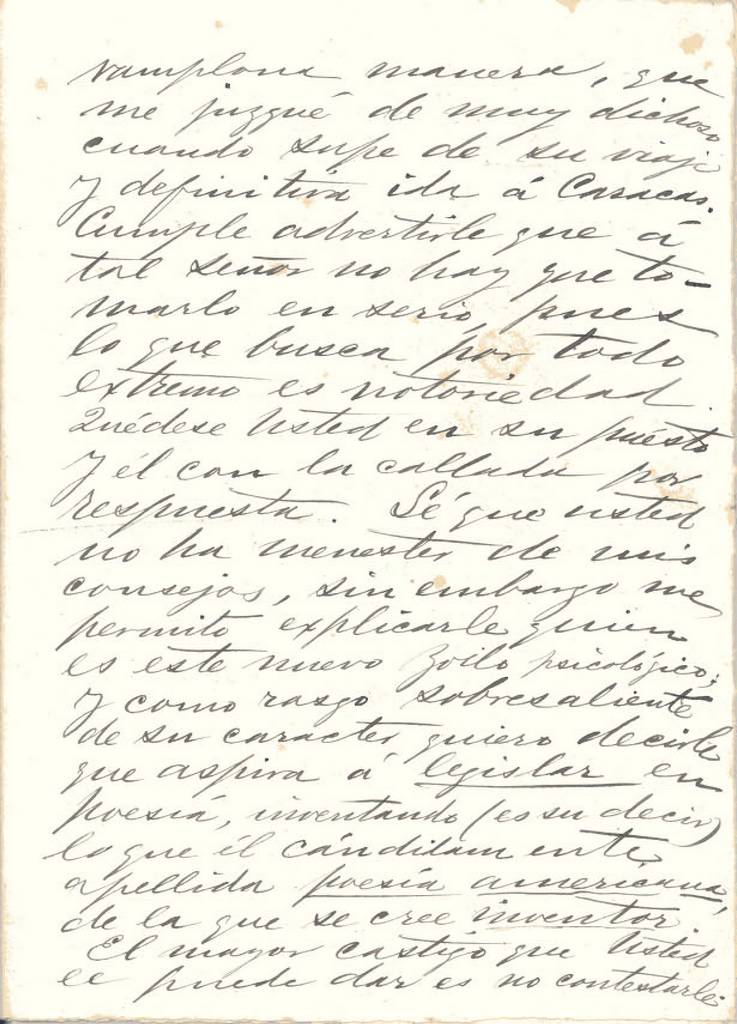 ramplona manera, que
me juzgué de muy dichoso
cuando supe de su viaje
y definitiva ida á Caracas.
Cumple advertirle que á
tal señor no hay que to-
marlo en serio, pues
lo que busca por todo
extremo es notoriedad.
Quédese Usted en su puesto
y él con la callada por
respuesta. Sé que usted
no ha menester de mis
consejos, sin embargo me
permito explicarle quien
es este nuevo Zoilo psicológico;
y como rasgo sobresaliente
de su caracter quiero decirle
que aspira á legislar en
poesía, inventando (es su decir)
lo que él cándidamente
apellida poesía americana,
de la que se cree inventor.
El mayor castigo que Usted
le puede dar es no contestarle.